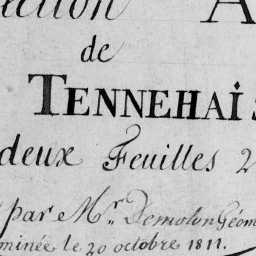 ection A
de
TENNEHAIS
deux Feuilles 2
par Mr. Demolon Géom
minée le 20 octobre 1811.